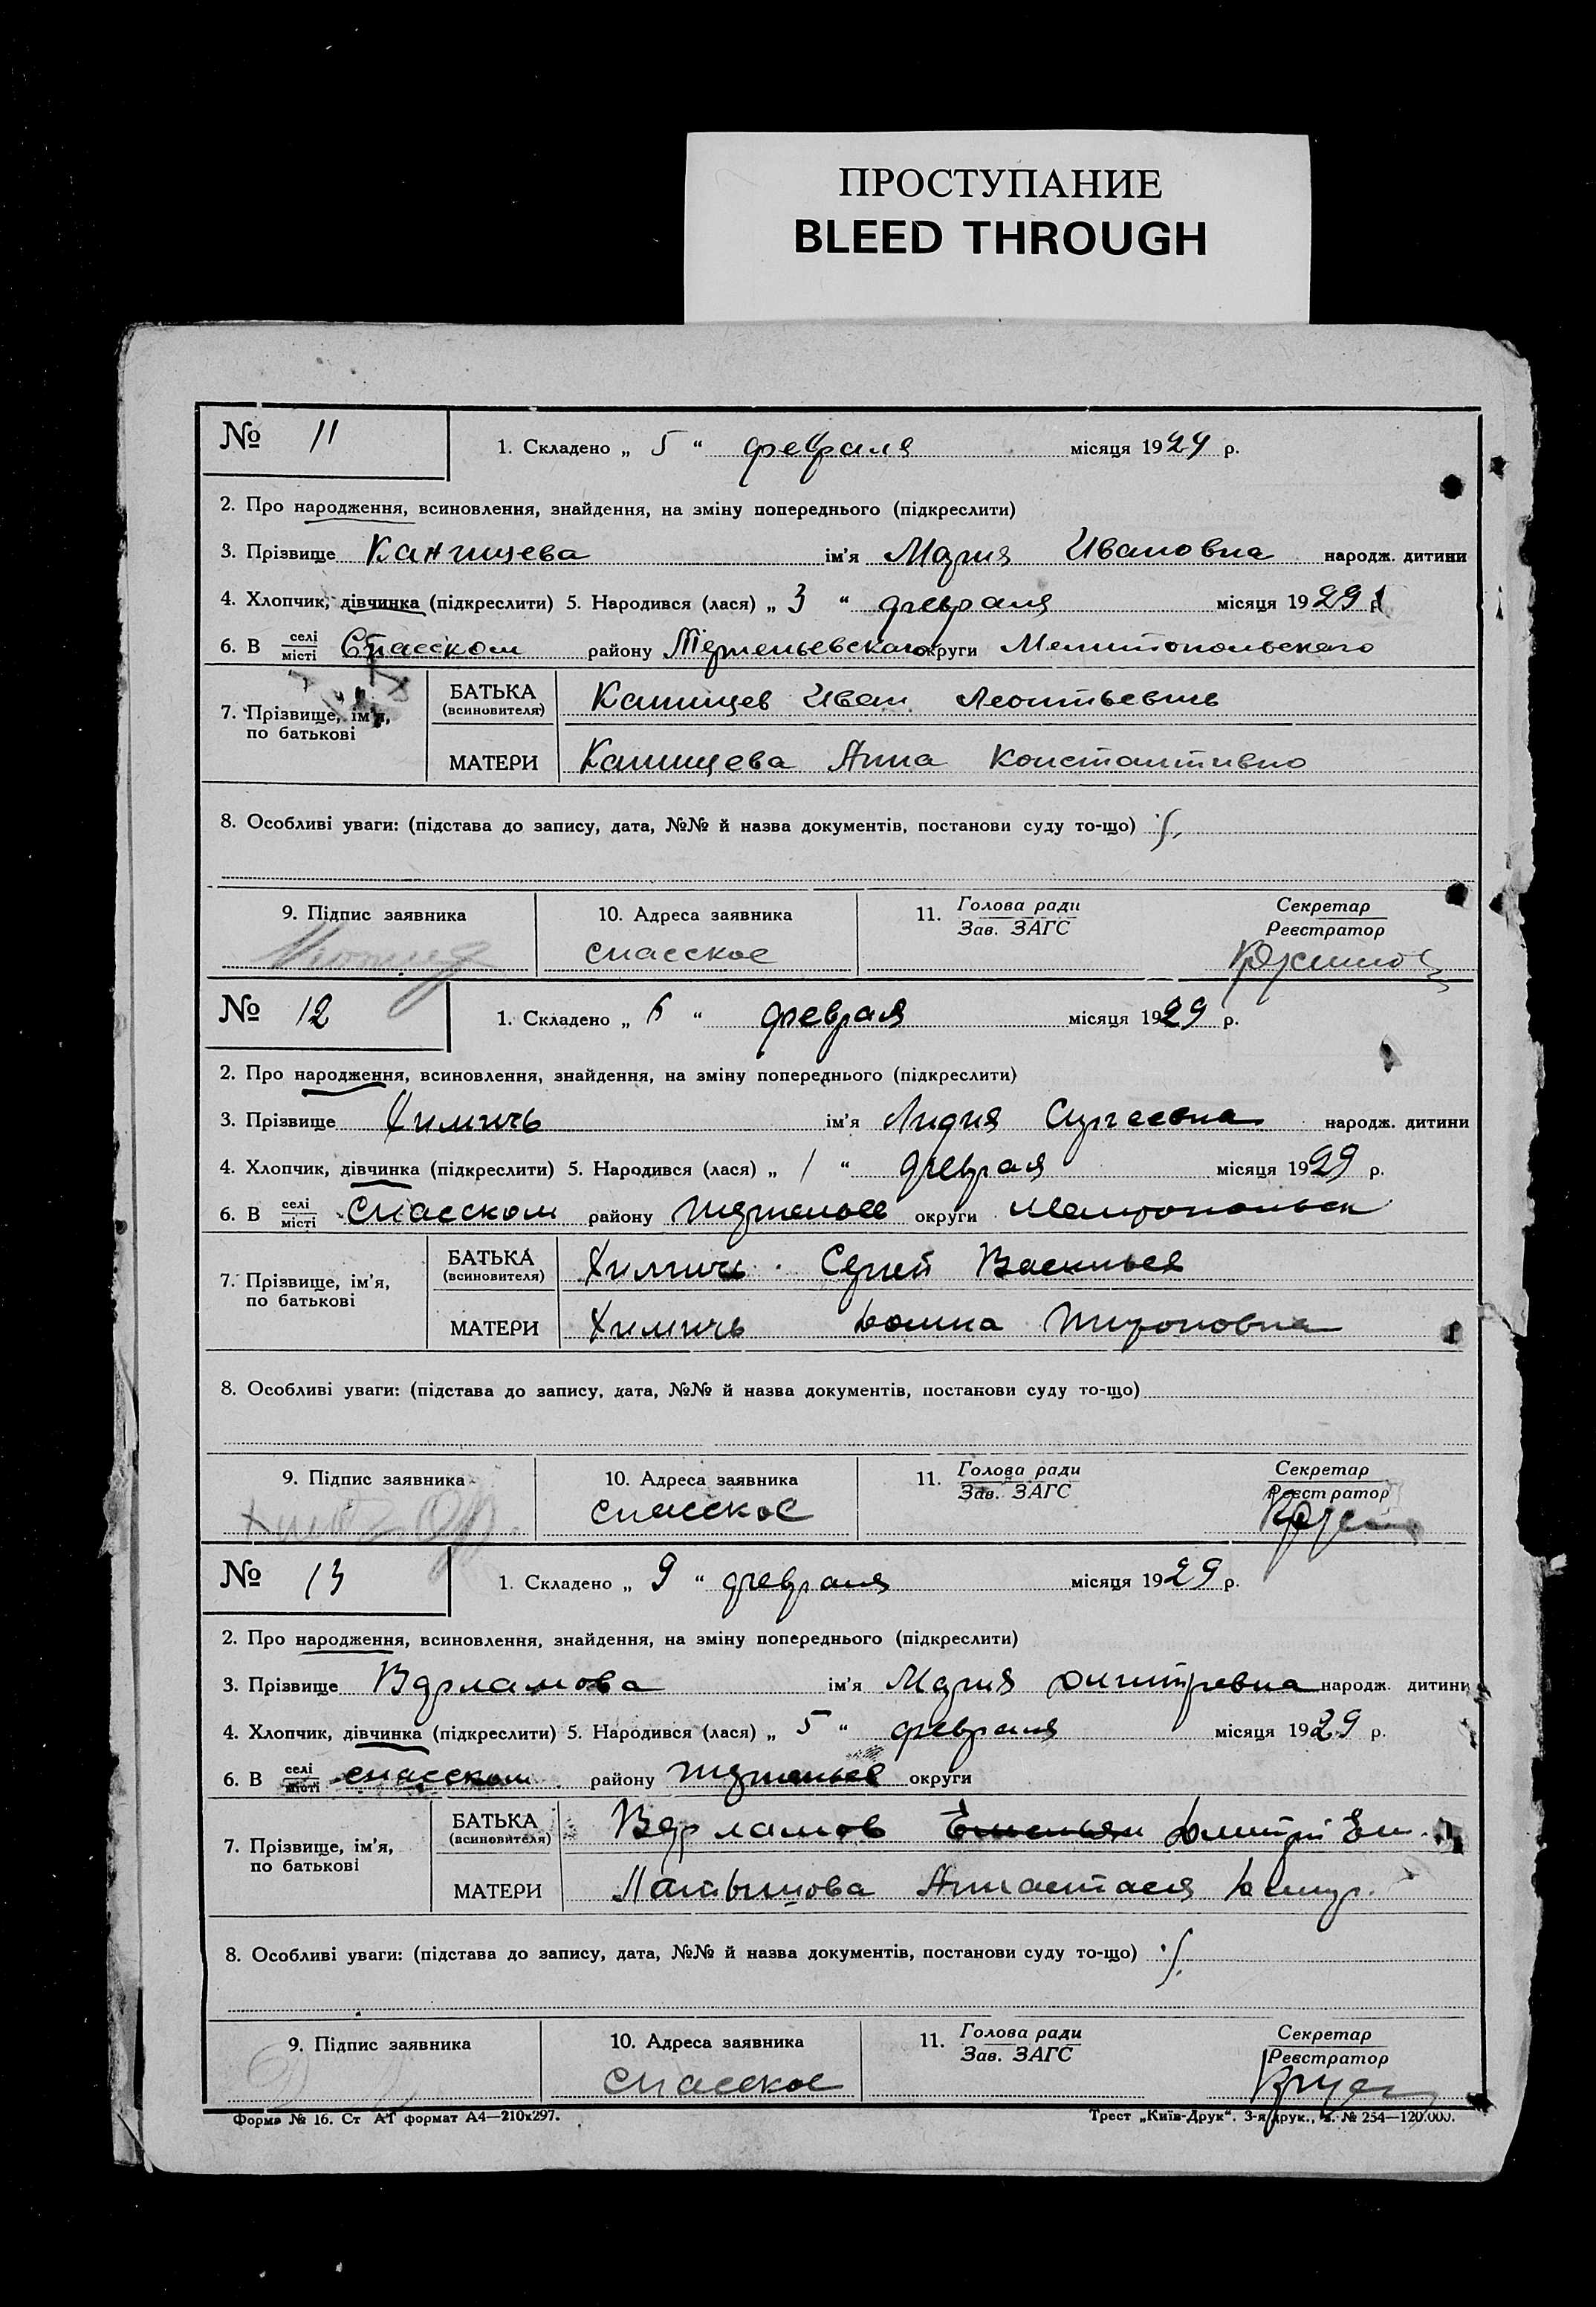 ПРОСТУПАНИЕ
BLEED THROUGH
№ 11 1. Складено „ 5 “ февраля місяця 1929 р.
2. Про народження, всиновлення, знайдення, на зміну попереднього (підкреслити)
3. Прізвище Канищева ім'я Мария Ивановна народж. дитини
4. Хлопчик, дівчинка (підкреслити) 5. Народився (лася) „ 3 “ февраля місяця 1929 р.
6. В селі місті Спасском району округи Мелитопольского
7. Прізвище, ім'я, по батькові
БАТЬКА (всиновителя) Канищев Иван Леонтьевич
МАТЕРИ Канищева Анна
8. Особливі уваги: (підстава до запису, дата, №№ й назва документів, постанови суду то-що)
9. Підпис заявника 10. Адреса заявника 11. Голова ради Зав. ЗАГС Секретар Реєстратор
Спасское
№ 12 1. Складено „ 6 “ февраля місяця 1929 р.
2. Про народження, всиновлення, знайдення, на зміну попереднього (підкреслити)
3. Прізвище Химичь ім'я Лидия Сергеевна народж. дитини
4. Хлопчик, дівчинка (підкреслити) 5. Народився (лася) „ 1 “ февраля місяця 1929 р.
6. В селі місті Спасском району округи Мелитопольск
7. Прізвище, ім'я, по батькові
БАТЬКА (всиновителя) Химичь Сергей Васильев
МАТЕРИ Химичь
8. Особливі уваги: (підстава до запису, дата, №№ й назва документів, постанови суду то-що)
9. Підпис заявника 10. Адреса заявника 11. Голова ради Зав. ЗАГС Секретар Реєстратор
Спасское
№ 13 1. Складено „ 9 “ февраля місяця 1929 р.
2. Про народження, всиновлення, знайдення, на зміну попереднього (підкреслити)
3. Прізвище Варламова ім'я Мария Дмитревна народж. дитини
4. Хлопчик, дівчинка (підкреслити) 5. Народився (лася) „ 5 “ февраля місяця 1929 р.
6. В селі місті Спасском району округи
7. Прізвище, ім'я, по батькові
БАТЬКА (всиновителя) Варламов Емельян Дмитрий Ем.
МАТЕРИ Анастасия
8. Особливі уваги: (підстава до запису, дата, №№ й назва документів, постанови суду то-що)
9. Підпис заявника 10. Адреса заявника 11. Голова ради Зав. ЗАГС Секретар Реєстратор
Спасское
Форма № 16. Ст АТ формат А4—210х297. Трест „Київ-Друк“. 3-я друк., з. № 254—120.000.